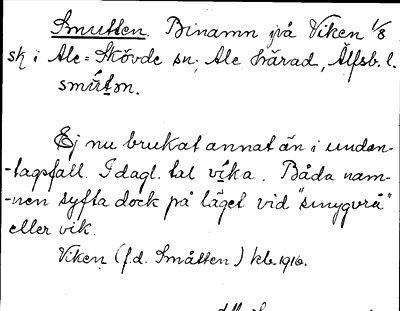 Smutten. Binamn på Viken 1/8
sk i Ale-Skövde sn; Ale härad, Älfsb. l.
smúton.
Ej nu brukat annat än i undan-
-tagsfall. I dagl. tal víka. Båda nam-
-nen syfta dock på läget vid "smygvrå"
eller vik.
Viken (f.d. Småtten) kb. 1916.